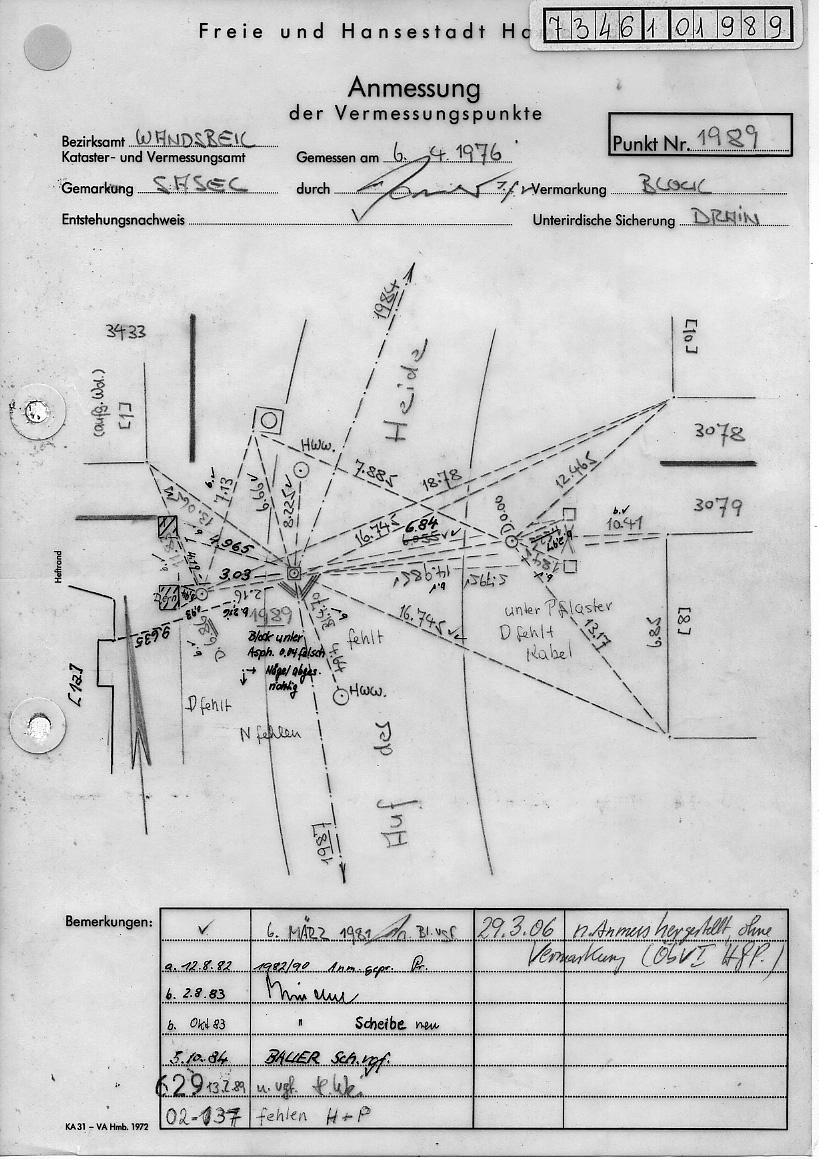 Freie und Hansestadt Ha
7346101989
Anmessung
der Vermessungspunkte
Bezirksamt WANDSBEK
Kataster- und Vermessungsamt
Gemessen am 6. 4. 1976
Punkt Nr. 1989
Gemarkung SASEL
durch
Vermarkung BLOCK
Entstehungsnachweis
Unterirdische Sicherung DRAIN
1984
3433
[10]
(aufg. Wd.)
[1]
Heide
3078
HWW.
7.885
18.78
12.465
b.✓
7.13
6.66
8.225
3079
13.065
16.745
6.84
6.855
D 0.00
b.✓
10.41
4.965
Heftrand
3.03
14.985
5.795
2.16
1989
16.745
unter Pflaster
D fehlt
Kabel
13.17
6.85
[8]
9.635
Block unter
Asph. 0.04 falsch
Nägel abges.
richtig
fehlt
4.64
HWW.
[12]
D fehlt
N fehlen
Auf der
1987
Bemerkungen:
✓ 6. MÄRZ 1981 Bl. vgf
29.3.06 n. Anmess hergestellt ohne
Vermarkung (ÖbVI H&P.)
a. 12.8.82 1982/90 Anm. gepr. Pr.
b. 2.8.83
b. Okt 83 " Scheibe neu
5.10.84 BAUER Sch. vgf.
629 13.2.89 u. vgf.
02-137 fehlen H+P
KA 31 – VA Hmb. 1972